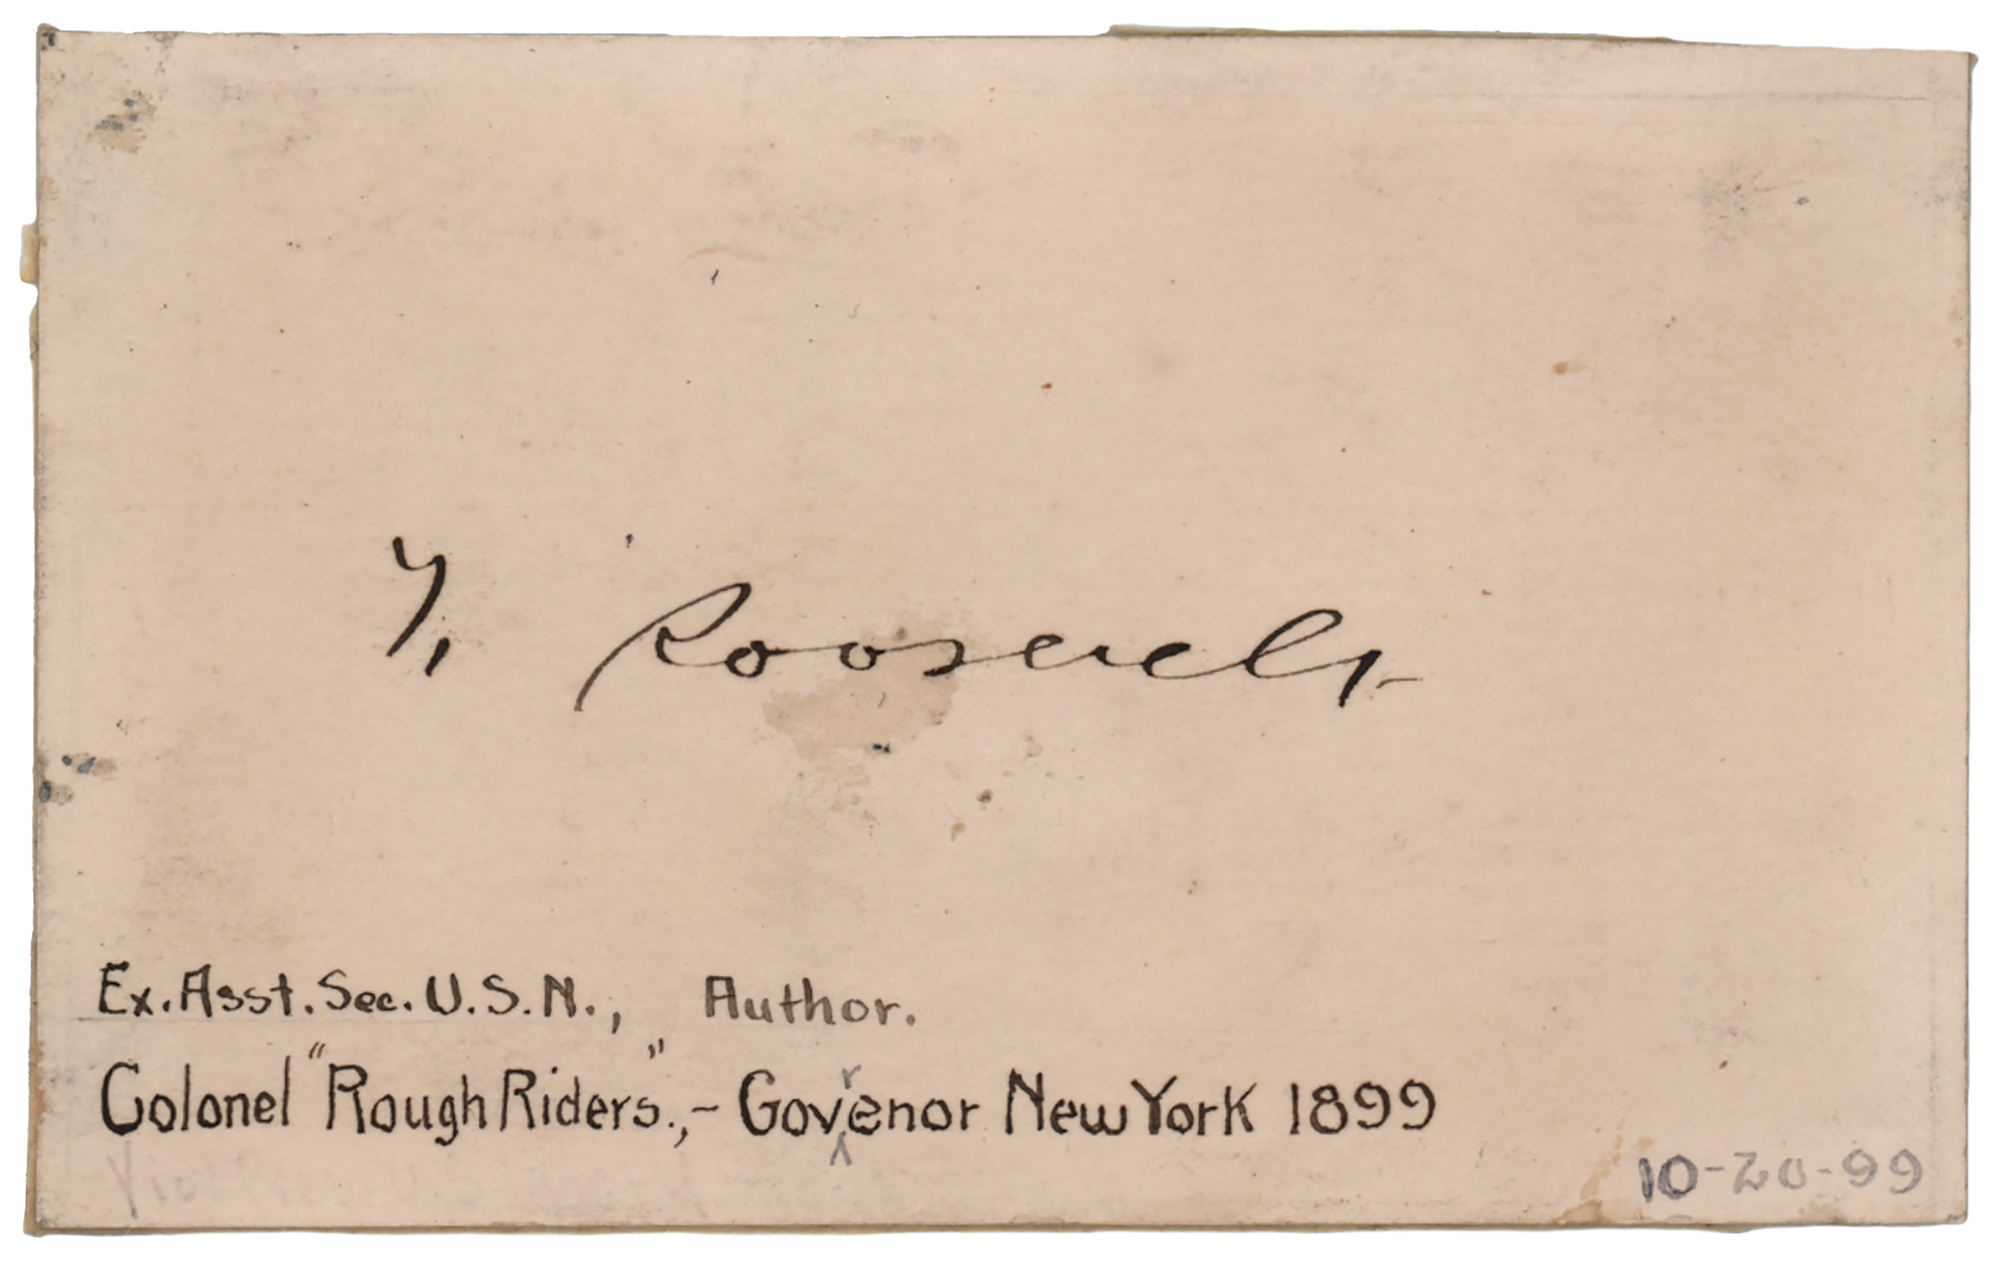 T. Roosevelt
Ex. Asst. Sec. U.S.N., Author.
Colonel "Rough Riders.",- Govrenor New York 1899
10-20-99